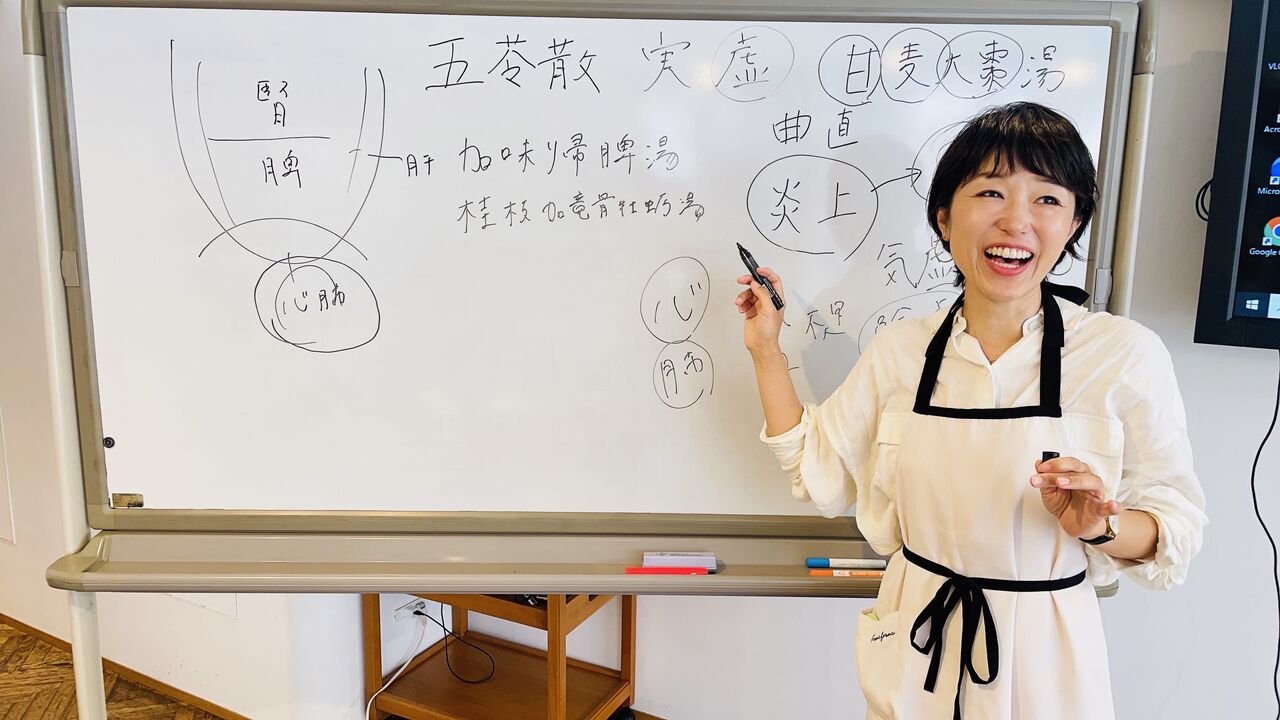 五苓散 実 虚 甘麦大棗湯
腎
脾
肝
心肺
加味帰脾湯
桂枝加竜骨牡蛎湯
曲直
炎上
気虚
心
肺
Micro
Google C